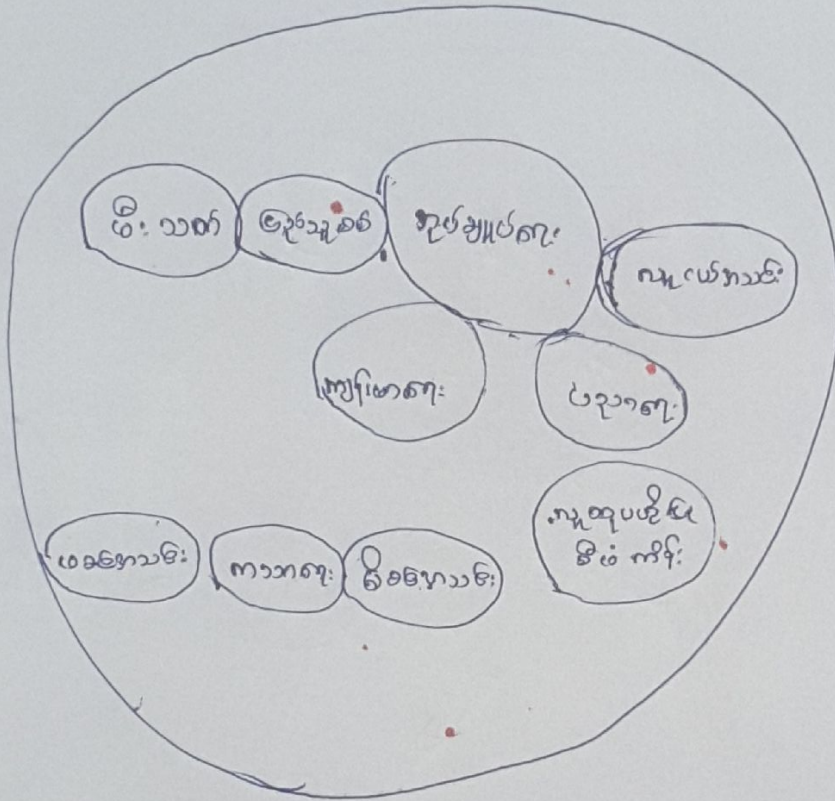 မီးသတ်
ပြည်သူ့စစ်
အုပ်ချုပ်ရေး
လူငယ်အသင်း
ကျန်းမာရေး
ပညာရေး
လူထုပဟိုပြု
စီမံကိန်း
ဖခင်အသင်း
ဘာသာရေး
မိခင်အသင်း